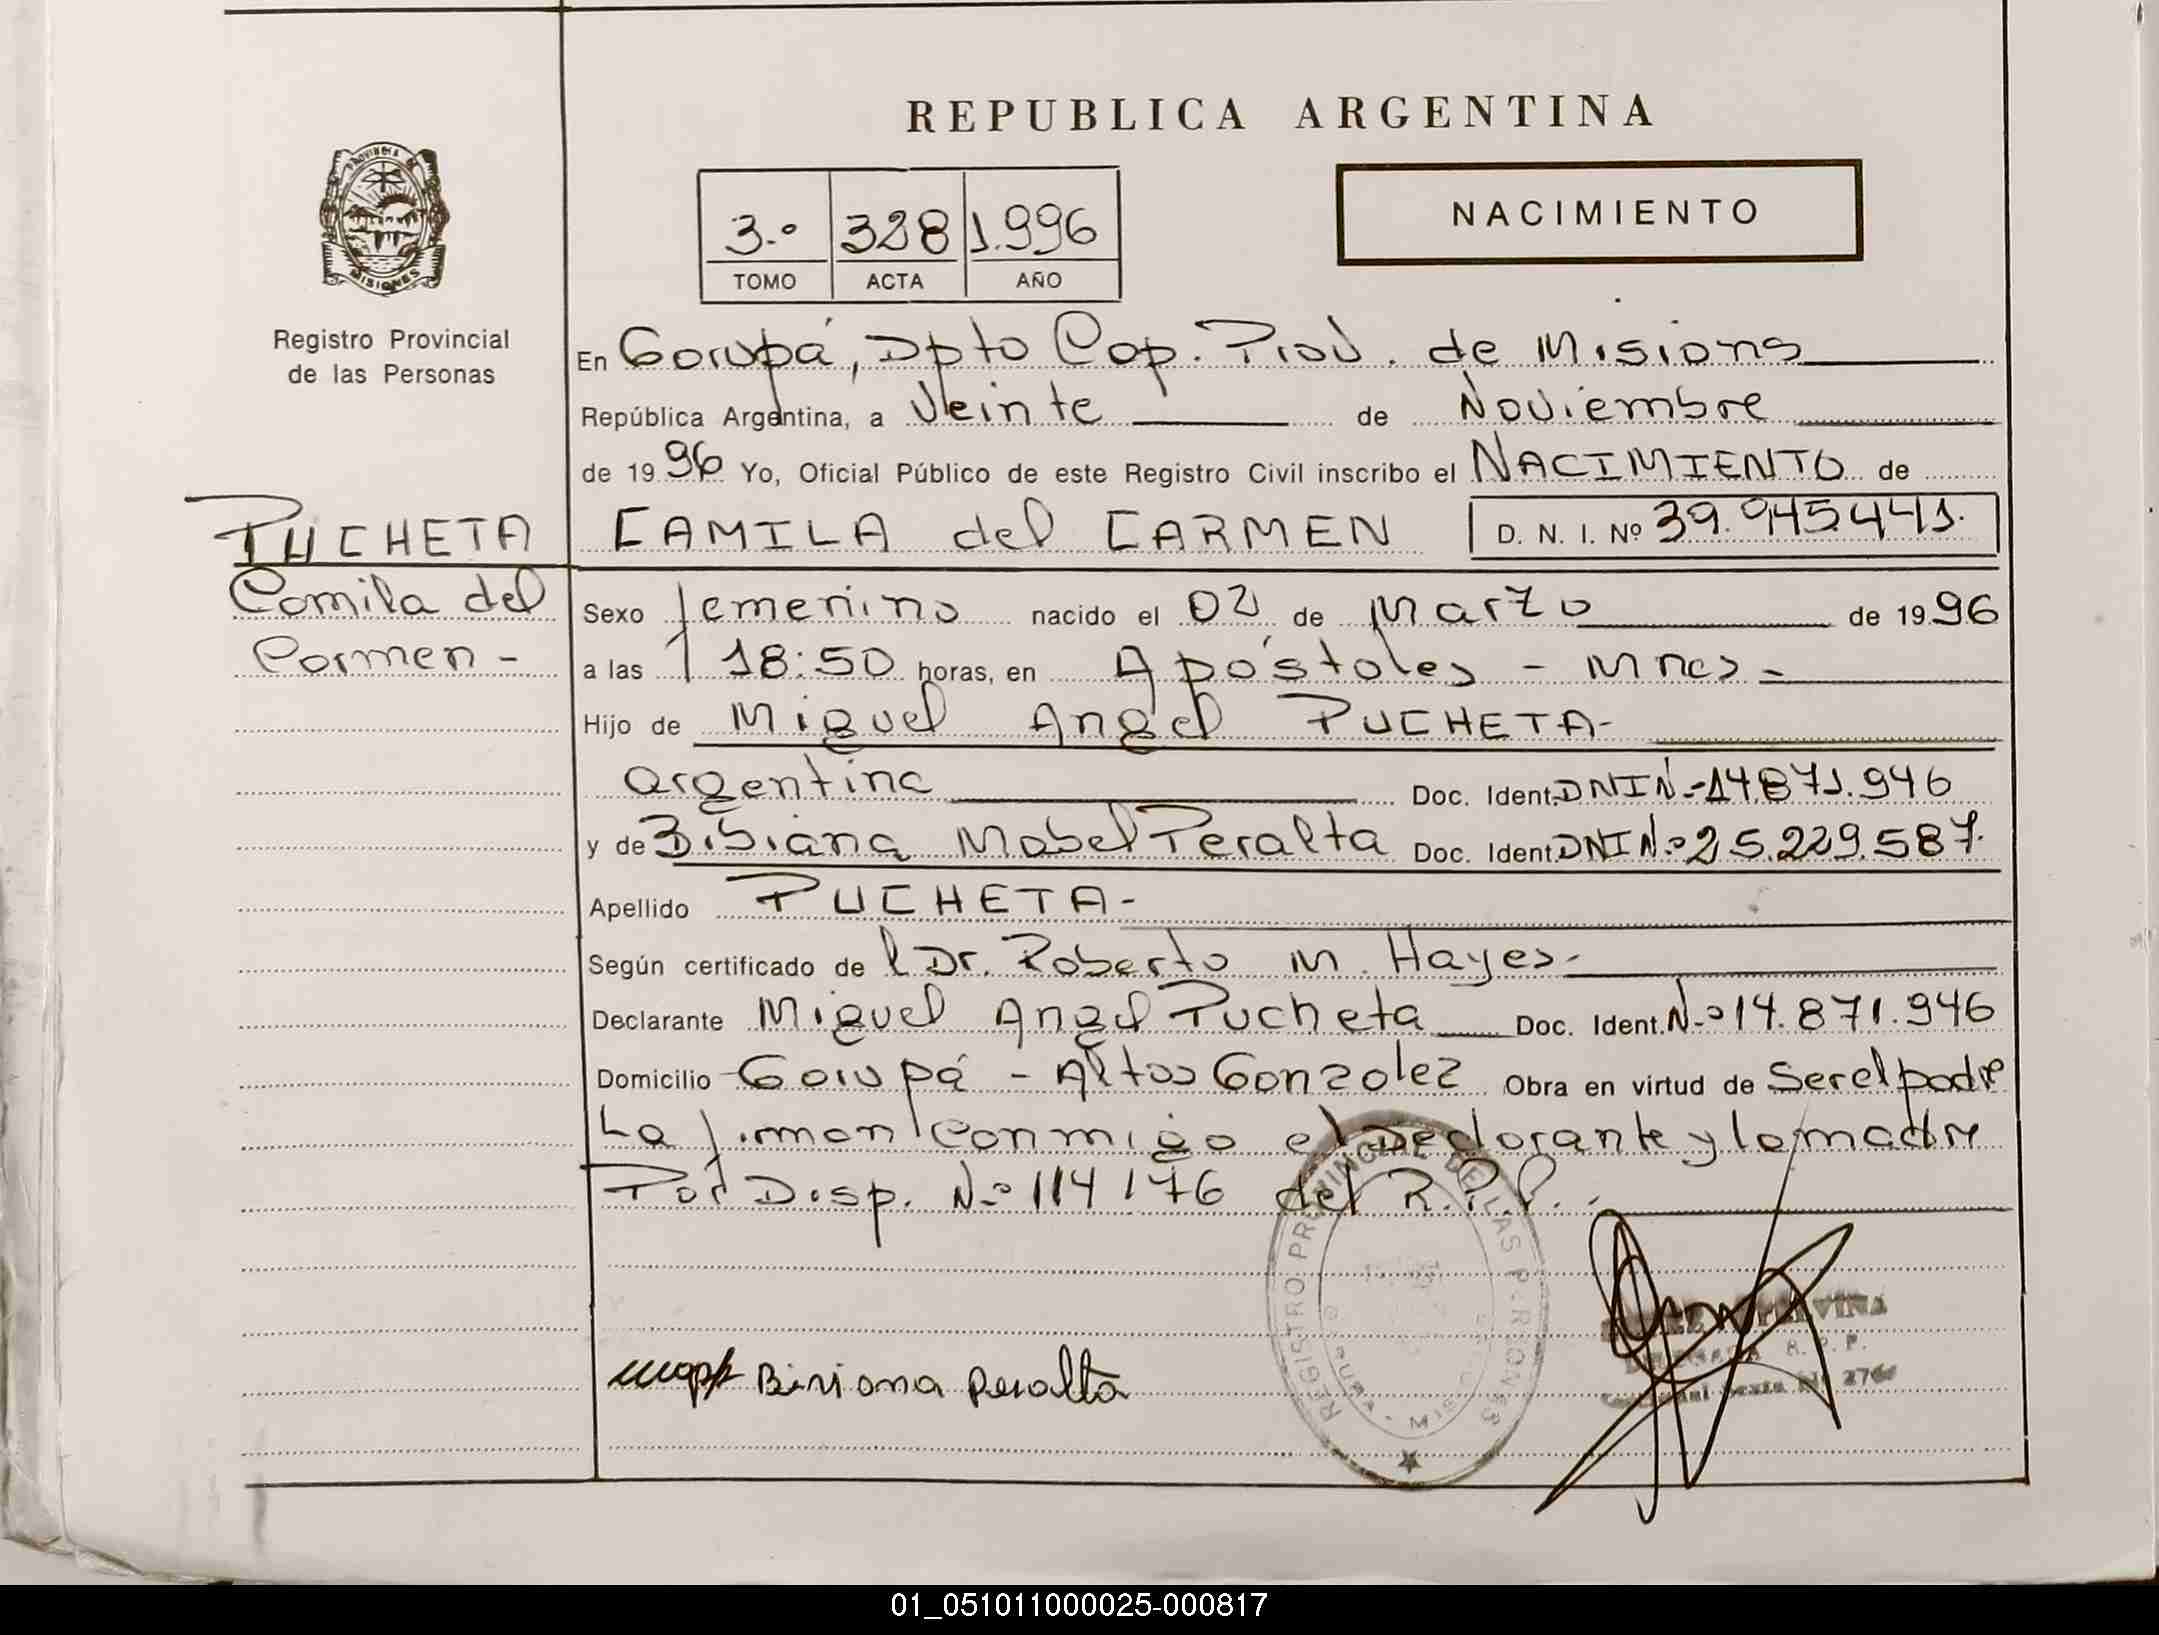 REPUBLICA ARGENTINA
PROVINCIA DE
MISIONES
Registro Provincial
de las Personas
3.º 328 1.996
TOMO ACTA AÑO
NACIMIENTO
En Garupá, Dpto Cap. Prov. de Misions
República Argentina, a Veinte de Noviembre
de 1996 Yo, Oficial Público de este Registro Civil inscribo el NACIMIENTO de
PUCHETA
Camila del
Carmen -
CAMILA del CARMEN D. N. I. Nº 39.945.441.
Sexo femenino nacido el 02 de Marzo de 1996
a las 18:50 horas, en Apóstoles - Mnes -
Hijo de Miguel Angel PUCHETA-
argentina Doc. Ident. DNI Nº 14.871.946
y de Bibiana Mabel Peralta Doc. Ident. DNI Nº 25.229.587.
Apellido PUCHETA-
Según certificado de l Dr. Roberto M. Hayes-
Declarante Miguel Angel Pucheta Doc. Ident. Nº 14.871.946
Domicilio Garupá - Altos Gonzalez Obra en virtud de Ser el padre
La firman conmigo el Declarante y la madre
Por Disp. Nº 114/76 del R.P.P.
REGISTRO PROVINCIAL DE LAS PERSONAS
Bibiana Peralta
R. P. P.
01_051011000025-000817